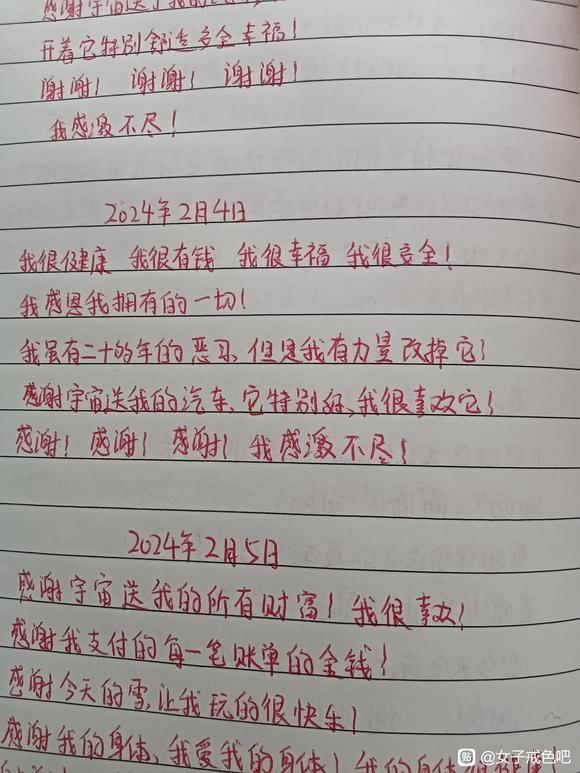 感谢宇宙送了我的
开着它特别舒适安全幸福！
谢谢！ 谢谢！ 谢谢！
我感激不尽！
2024年2月4日
我很健康 我很有钱 我很幸福 我很安全！
我感恩我拥有的一切！
我虽有二十的年的恶习，但是我有力量改掉它！
感谢宇宙送我的汽车，它特别好，我很喜欢它！
感谢！感谢！感谢！我感激不尽！
2024年2月5日
感谢宇宙送我的所有财富！我很喜欢！
感谢我支付的每一笔账单的金钱！
感谢今天的雪，让我玩的很快乐！
感谢我的身体，我爱我的身体！我的身体
贴 @女子戒色吧